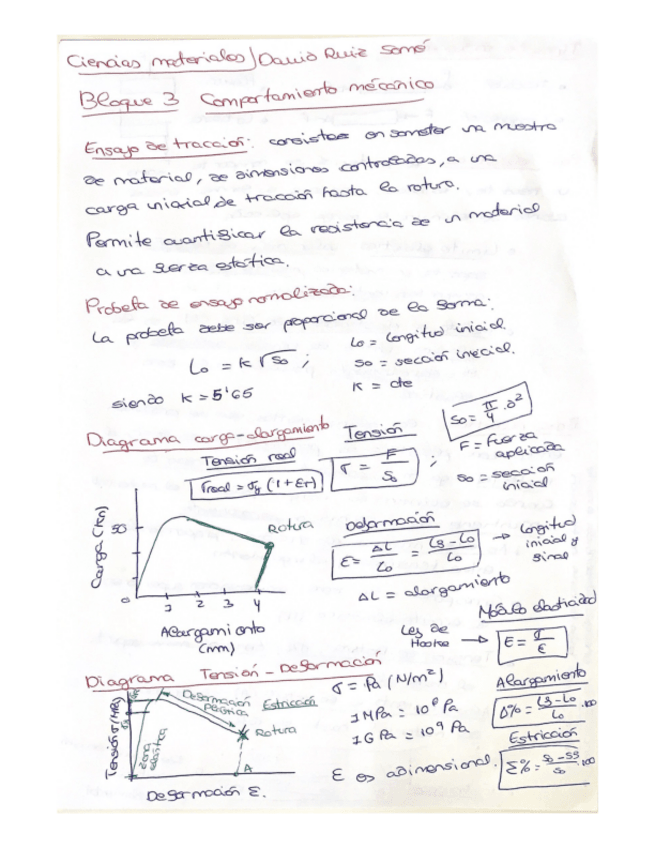 Ciencias materiales / David Ruiz Somé
Bloque 3 Comportamiento mecánico
Ensayo de tracción: consistes en someter una muestra
de material, de dimensiones controladas, a una
carga uniaxial de tracción hasta la rotura.
Permite cuantificar la resistencia de un material
a una fuerza estática.
Probeta de ensayo normalizada:
La probeta debe ser proporcional de la forma:
Lo = K √So ;
Lo = Longitud inicial
So = sección inicial.
K = cte
siendo K = 5'65
So = π/4 · D²
Diagrama carga-alargamiento
Tensión
σ = F/So ;
F = Fuerza
aplicada
So = sección
inicial
Tensión real
Carga (KN)
50
0
1 2 3 4
Rotura
Alargamiento
(mm)
Deformación
E = ΔL/Lo = Lf - Lo/Lo
→ Longitud
inicial y
final
ΔL = alargamiento
Módulo elasticidad
Ley de
Hooke → E = σ/ε
Diagrama Tensión - Deformación
σ = Pa (N/m²)
1 MPa = 10⁶ Pa
1 GPa = 10⁹ Pa
E es adimensional.
Alargamiento
Δ% = Lf - Lo/Lo · 100
Estricción
Σ% = So - Sf/So · 100
Tensión σ (MPa)
Zona
elástica
Deformación
Plástica
Estricción
Rotura
A
Deformación Σ.